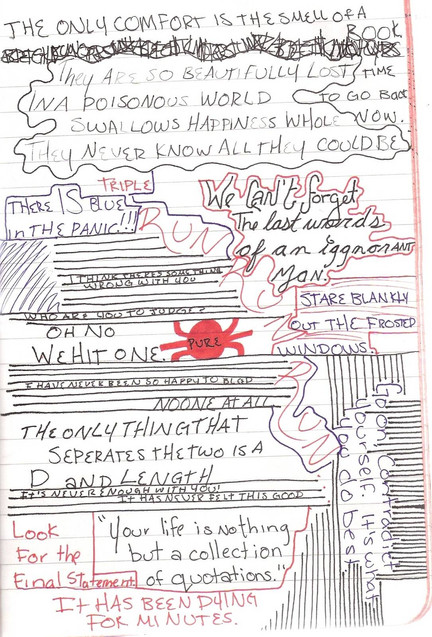 THE ONLY COMFORT IS THE SMELL OF A
BOOK
THEY ARE SO BEAUTIFULLY LOST
IN A POISONOUS WORLD
SWALLOWS HAPPINESS WHOLE
THEY NEVER KNOW ALL THEY COULD BE
TIME
TO GO BACK
NOW.
TRIPLE
THERE IS BLUE
IN THE PANIC!!!
RUN
We Can't forget
The last words
of an iggnorANT
MAN.
I THINK THERES SOMETHING
WRONG WITH YOU
STARE BLANKLY
OUT THE FROSTED
WINDOWS.
WHO ARE YOU TO JUDGE?
OH NO
WE HIT ONE.
PURE
I HAVE NEVER BEEN SO HAPPY TO BLOD
NO ONE AT ALL
THE ONLY THING THAT
SEPERATES THE TWO IS A
D AND LENGTH
IT'S NEVER ENOUGH WITH YOU!
IT HAS NEVER FELT THIS GOOD
Go on Contradict
yourself. It's what
you do best
Look
For the
Final Statement
"Your life is nothing
but a collection
of quotations."
IT HAS BEEN DYING
FOR MINUTES.